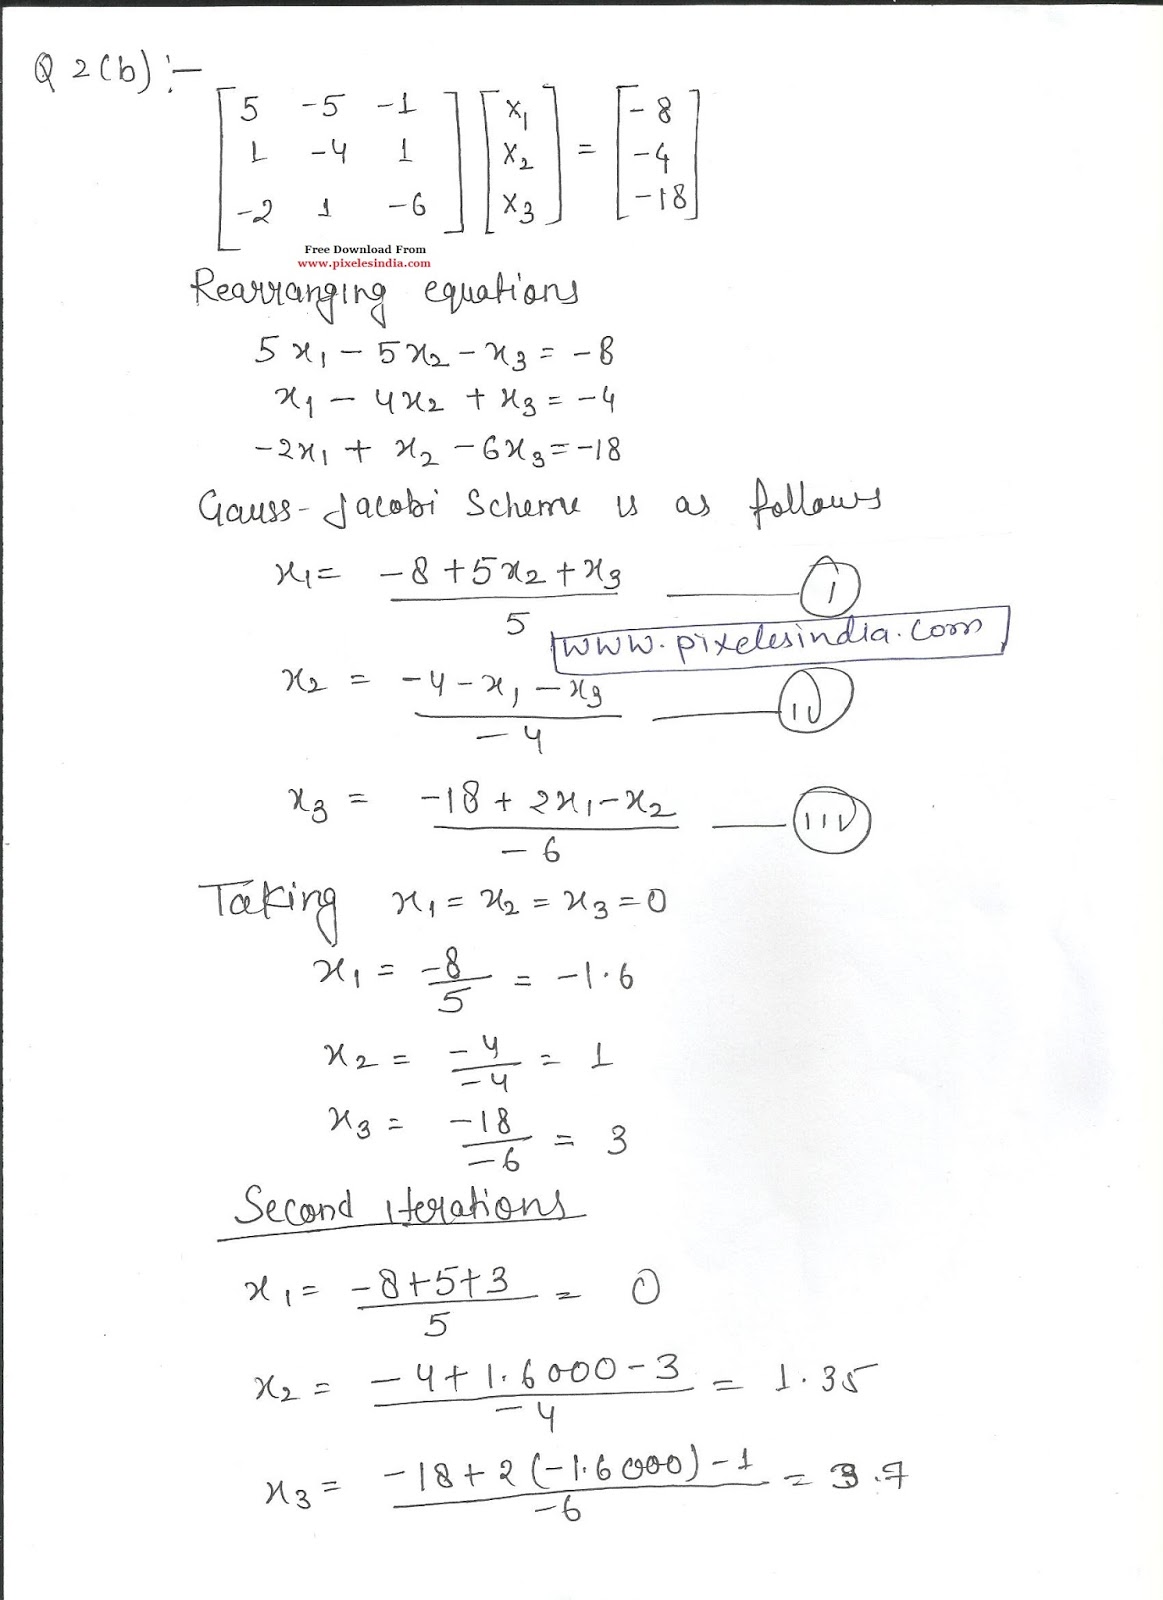 Q 2(b) :-
[ 5 -5 -1 ] [ x1 ] = [ -8 ]
[ 1 -4 1 ] [ x2 ] [ -4 ]
[ -2 1 -6 ] [ x3 ] [ -18 ]
Free Download From
www.pixelesindia.com
Rearranging equations
5x1 - 5x2 - x3 = -8
x1 - 4x2 + x3 = -4
-2x1 + x2 - 6x3 = -18
Gauss-Jacobi Scheme is as follows
x1 = (-8 + 5x2 + x3) / 5 —— (i)
www.pixelesindia.com
x2 = (-4 - x1 - x3) / -4 —— (ii)
x3 = (-18 + 2x1 - x2) / -6 —— (iii)
Taking x1 = x2 = x3 = 0
x1 = -8/5 = -1.6
x2 = -4/-4 = 1
x3 = -18/-6 = 3
Second iterations
x1 = (-8+5+3) / 5 = 0
x2 = (-4 + 1.6000 - 3) / -4 = 1.35
x3 = (-18 + 2(-1.6000) - 1) / -6 = 3.7